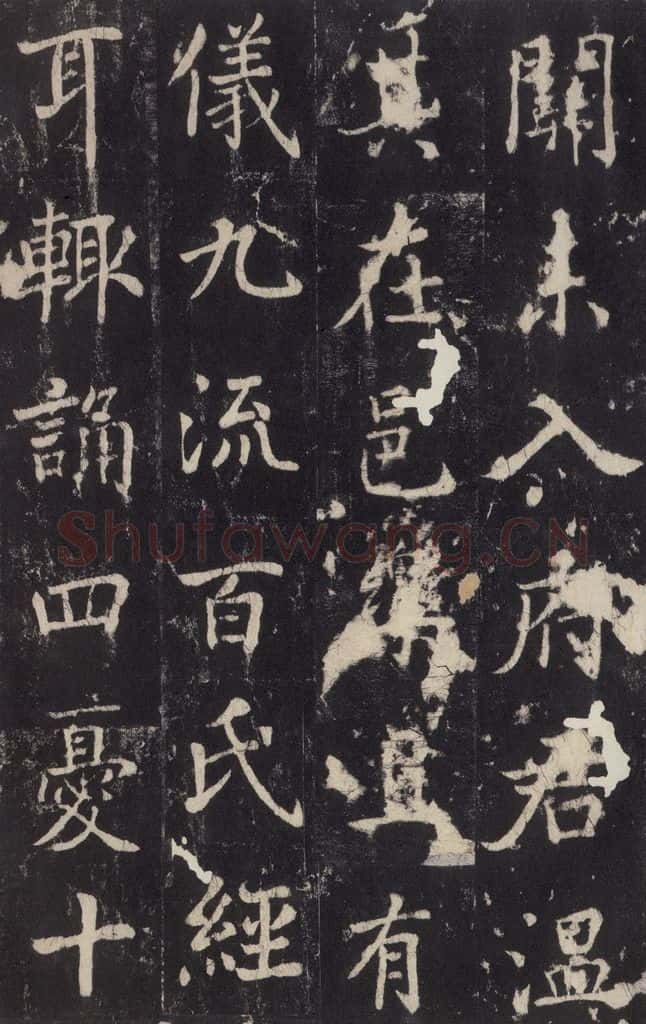 未入府君温
其在邑且有
儀九流百氏經
耳輒誦四憂十
Shufawang.CN